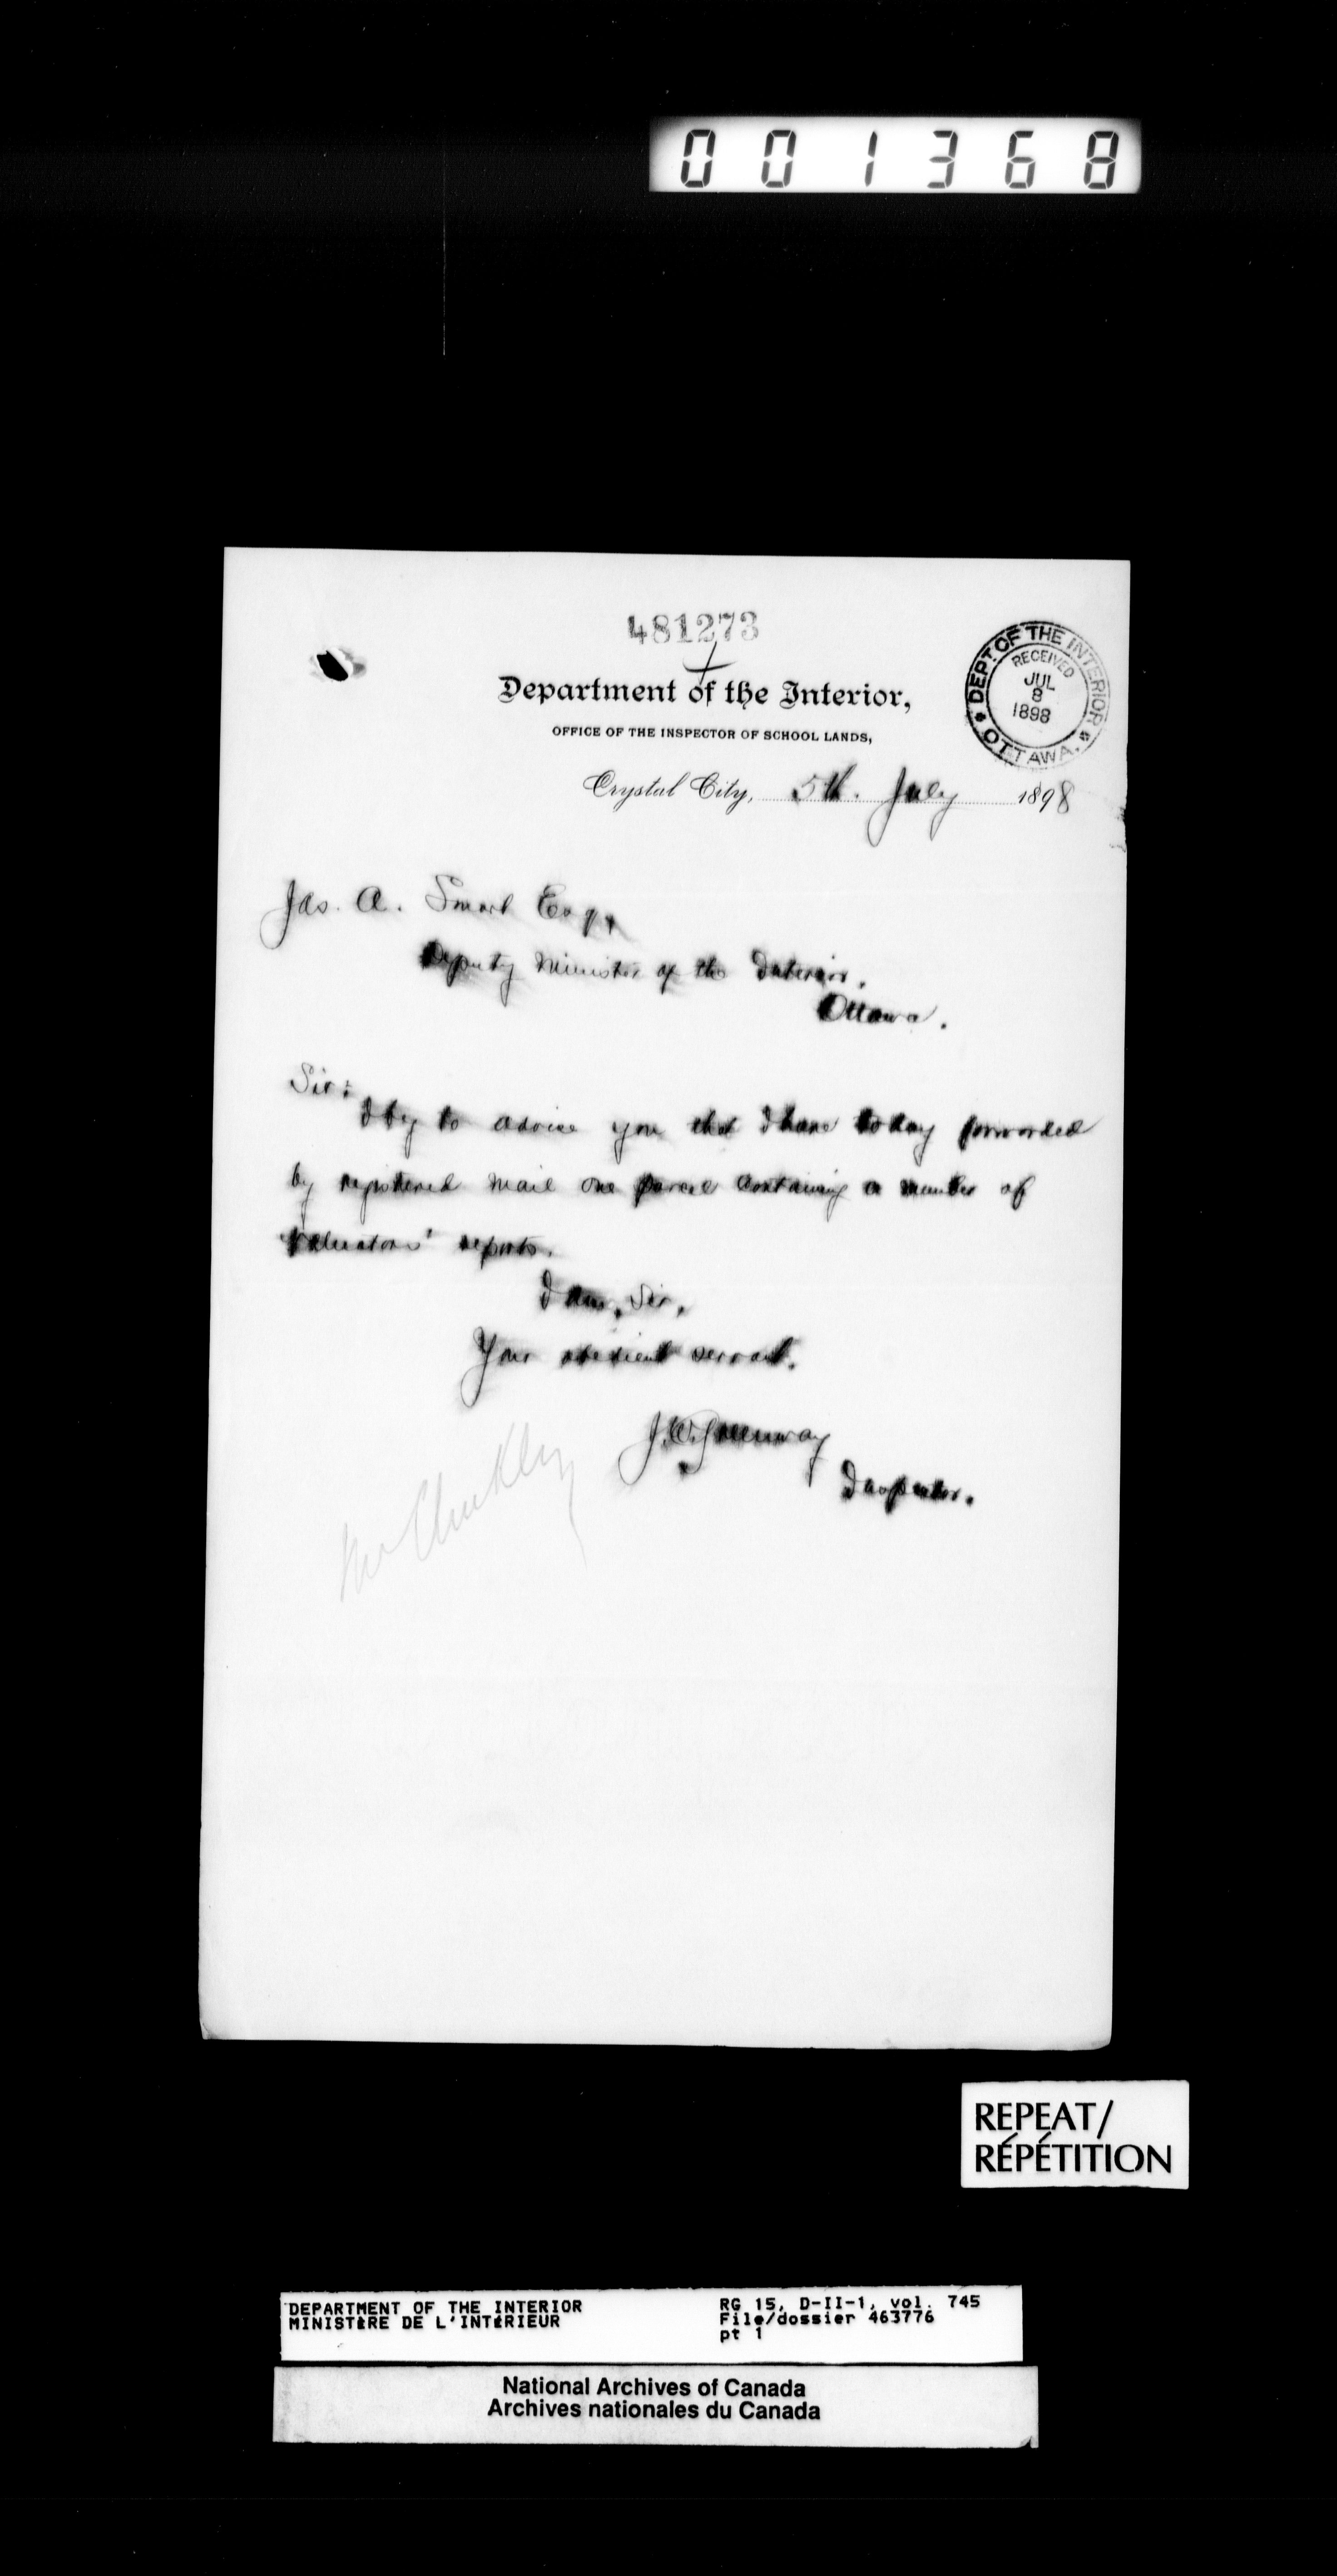 001368
481273
DEPT. OF THE INTERIOR
RECEIVED
JUL
8
1898
OTTAWA.
Department of the Interior,
OFFICE OF THE INSPECTOR OF SCHOOL LANDS,
Crystal City, 5th. July 1898
Jas. A. Smart Esq,
Deputy Minister of the Interior.
Ottawa.
Sir:
I beg to advise you that I have today forwarded
by registered mail one parcel containing a number of
valuators' reports.
I am, Sir,
Your obedient servant.
Greenway
Inspector.
Mr
REPEAT/
RÉPÉTITION
DEPARTMENT OF THE INTERIOR
MINISTÈRE DE L'INTÉRIEUR
RG 15, D-II-1, vol. 745
File/dossier 463776
pt 1
National Archives of Canada
Archives nationales du Canada